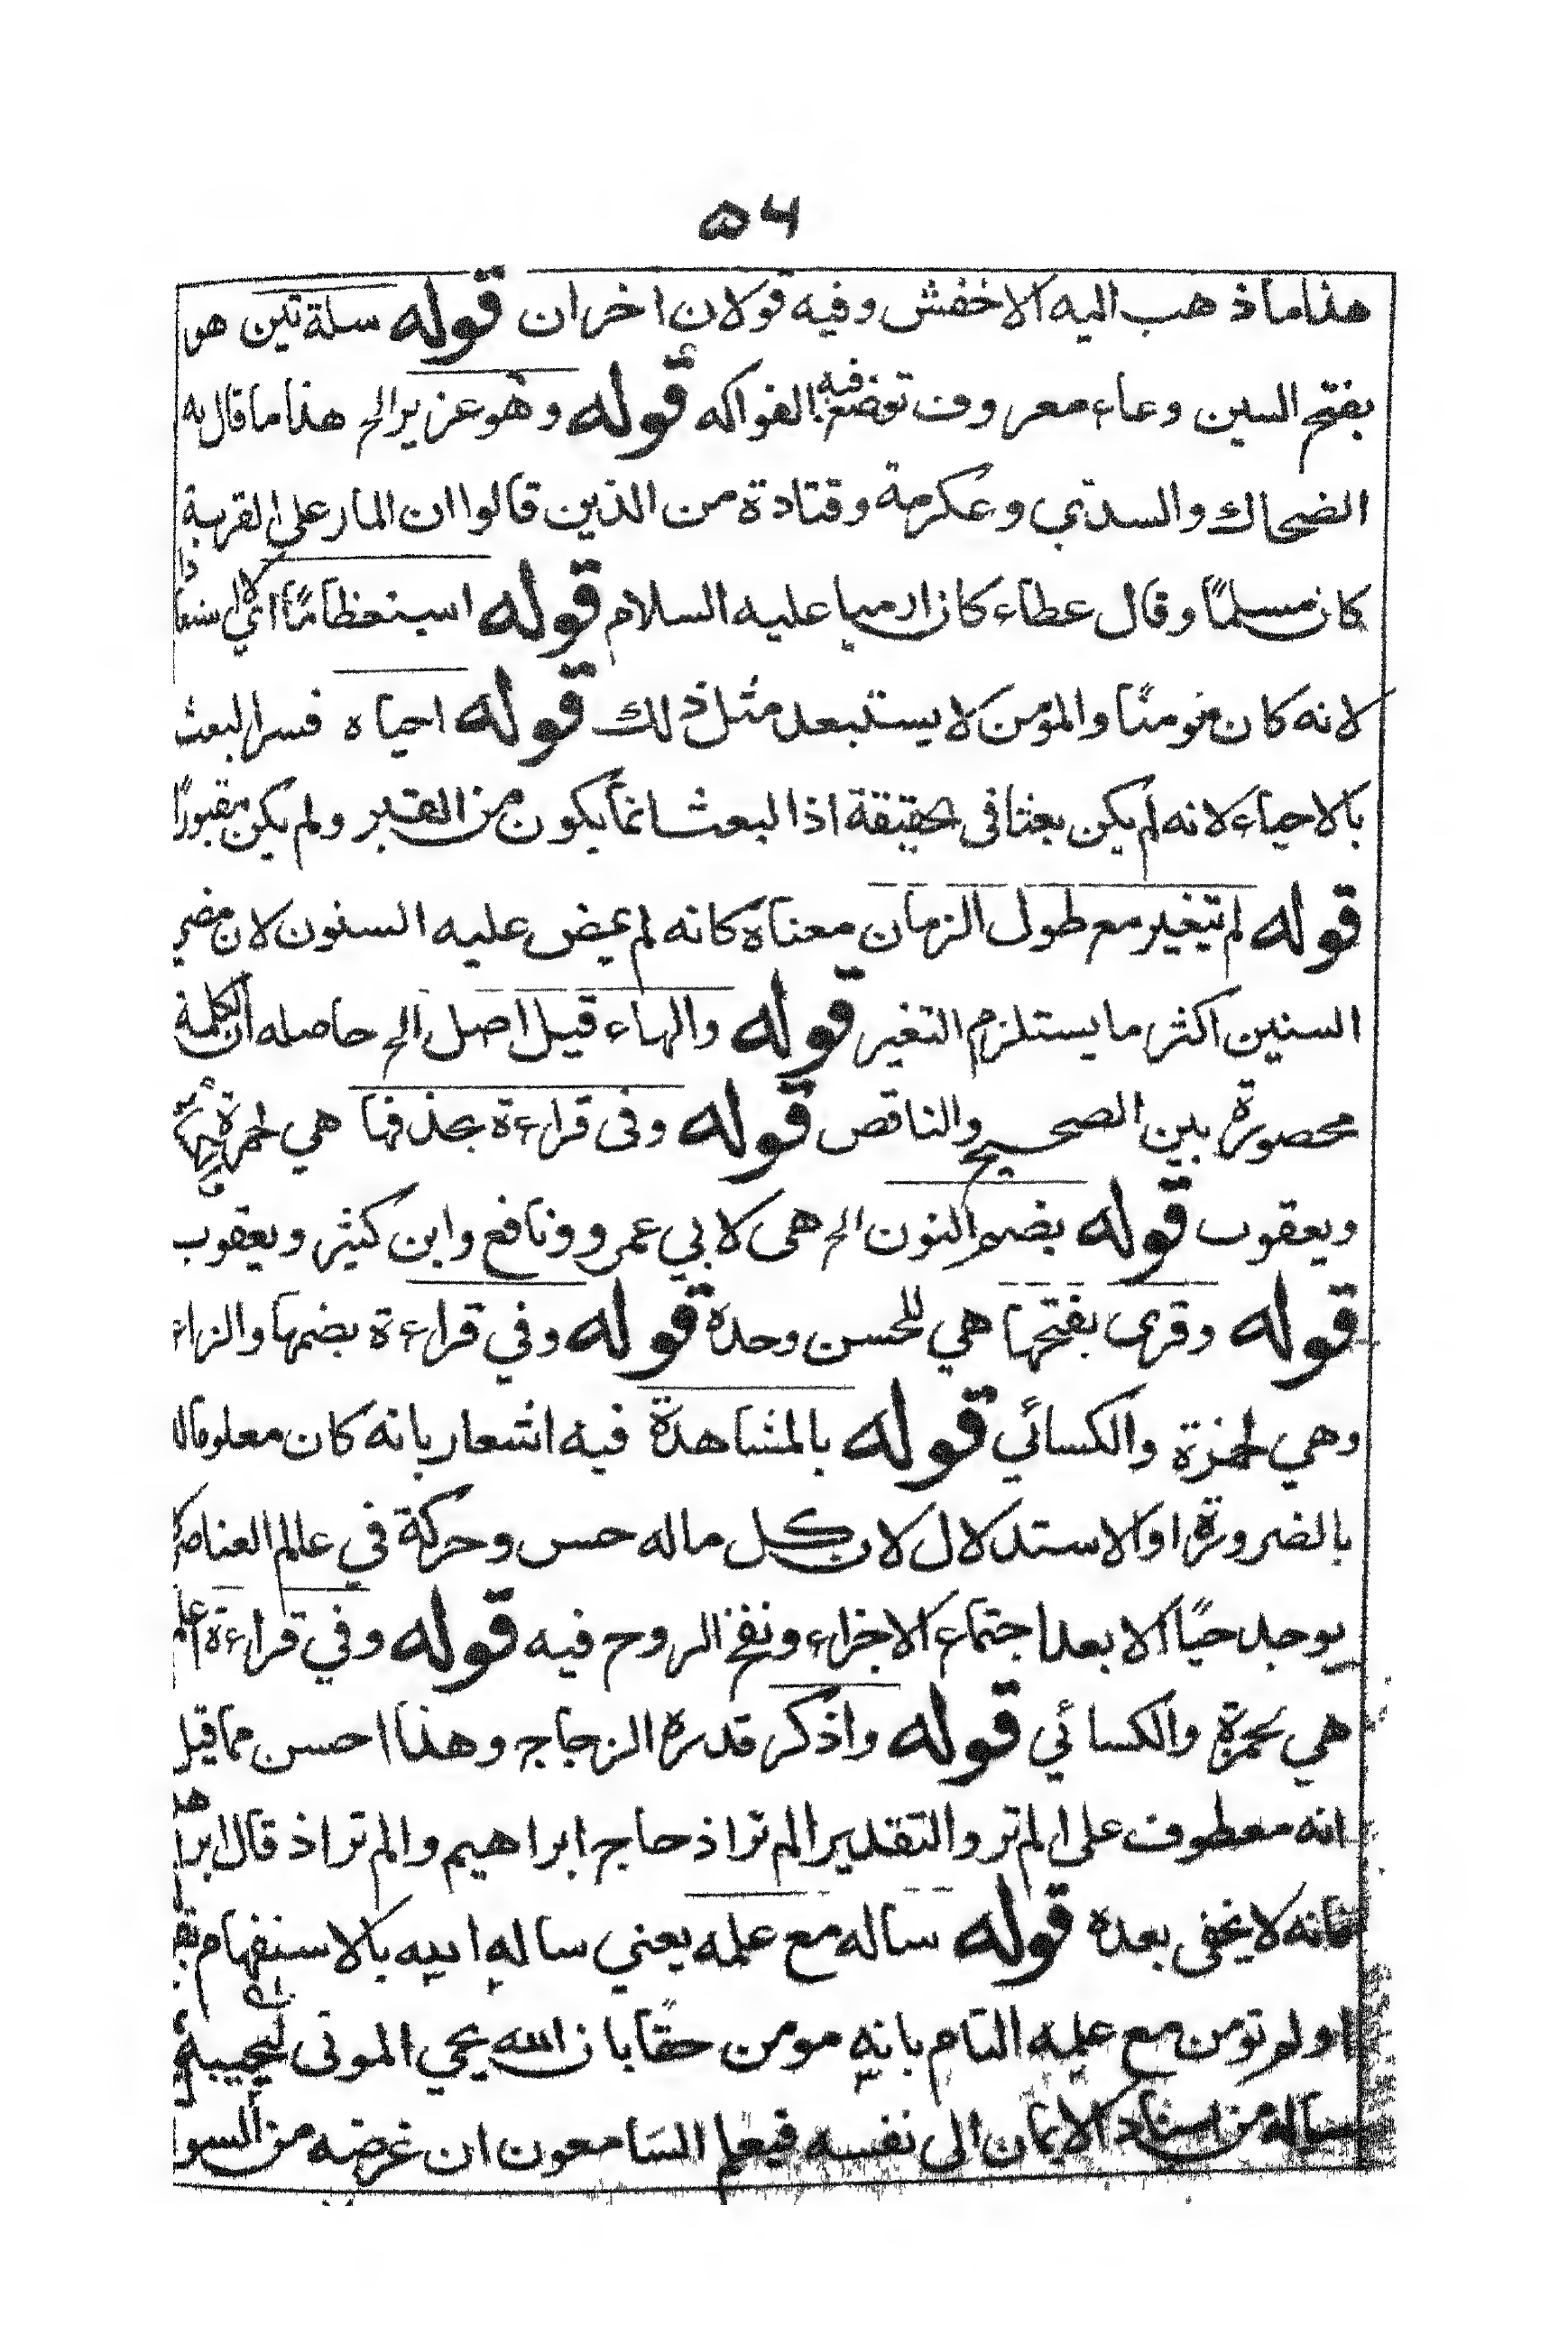 ۵۶
هذا ما ذهب اليه الاخفش وفيه قولان اخران قوله سلة تين هو
بفتح السين وعاء معروف توضع فيه الفواكه قوله وهو عزير الخ هذا ما قال به
الضحاك والسدي وعكرمة وقتادة من الذين قالوا ان المار على القرية
كان مسلمًا وقال عطاء كان ارميا عليه السلام قوله استعظامًا اي لا
لانه كان مومنًا والمؤمن لا يستبعد مثل ذلك قوله احياه فسر البعث
بالاحياء لانه لم يكن بعثا في حقيقة اذا لبعث انما يكون من القبر ولم يكن مقبورًا
قوله لم يتغير مع طول الزمان معناه كانه لم يمض عليه السنون لان مضي
السنين اكثر ما يستلزم التغير قوله والهاء قيل اصل الخ حاصله ان الكلمة
محصورة بين الصحيح والناقص قوله وفى قراءة بحذفها هي لحمزة
ويعقوب قوله بضم النون الخ هى لابي عمرو ونافع وابن كثير ويعقوب
قوله وقرى بفتحها هي للحسن وحده قوله وفي قراءة بضمها والزاء
وهي لحمزة والكسائي قوله بالمشاهدة فيه اشعار بانه كان معلوما له
بالضرورة او الاستدلال لان كل ماله حس وحركة في عالم العناصر
يوجد حيًا الا بعد اجتماع الاجزاء ونفخ الروح فيه قوله وفي قراءة اعلم
هي لحمزة والكسائي قوله واذكر قدره الزجاج وهذا احسن مما قيل
انه معطوف على الم تر والتقدير الم تر اذ حاج ابراهيم والم تر اذ قال ابراهيم
فانه لا يخفى بعده قوله ساله مع علمه يعني ساله ابيه بالاستفهام
اولم تومن مع علمه التام بانه مومن حقًا بان الله يحي الموتى ليجيبه
ساله من اسناد الايمان الى نفسه فيعلم السامعون ان غرضه من السوا